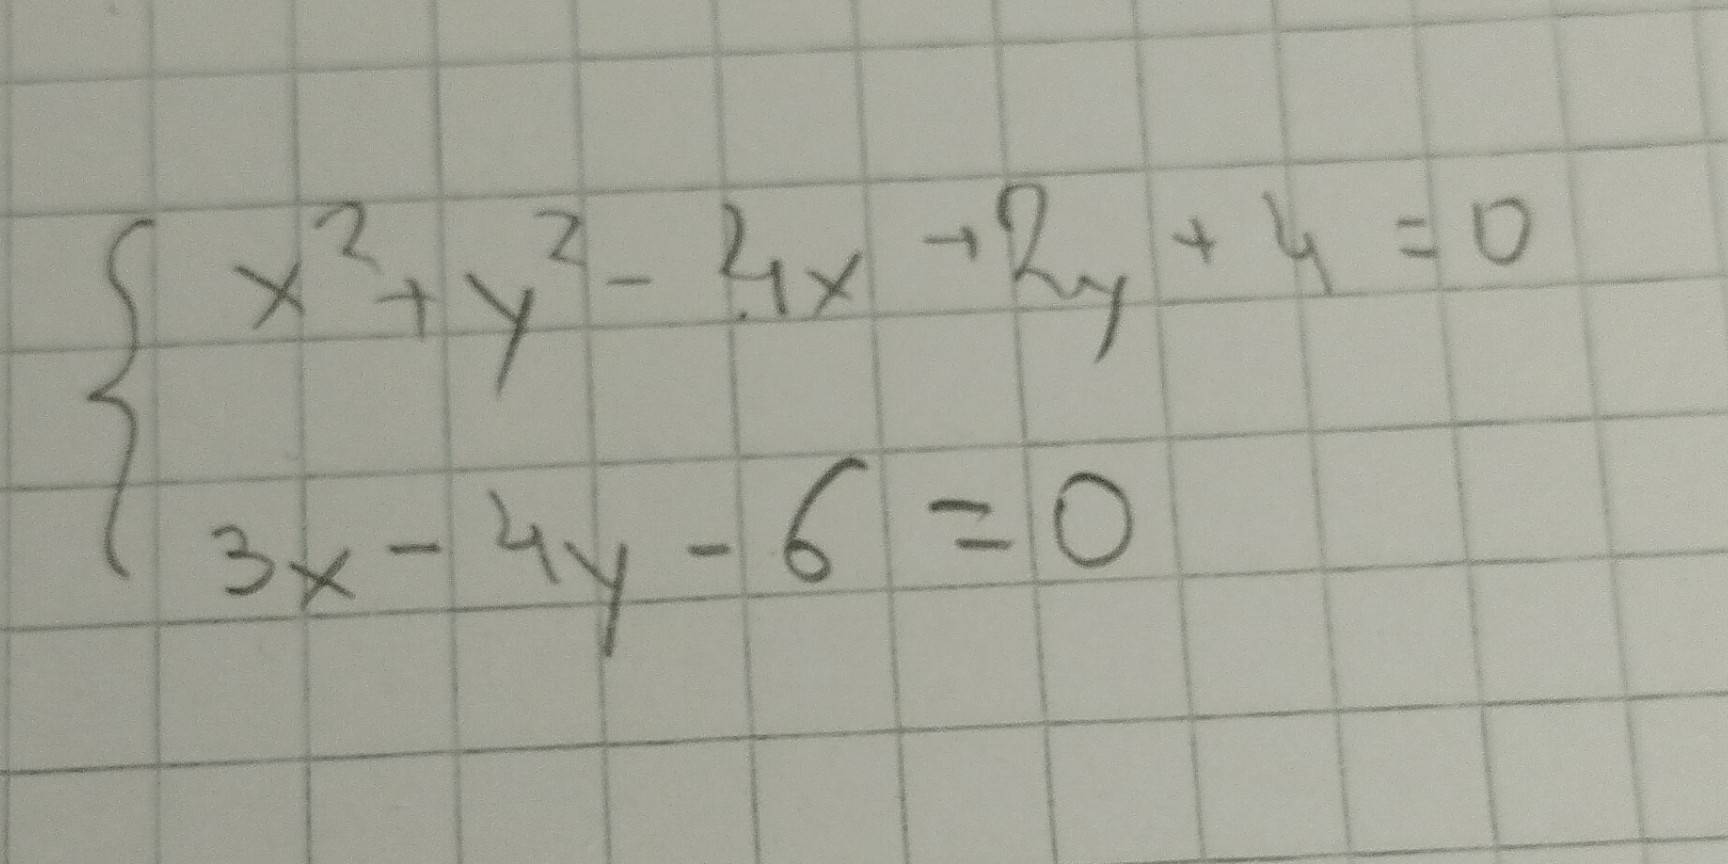 x² + y² - 4x + 2y + 4 = 0
3x - 4y - 6 = 0